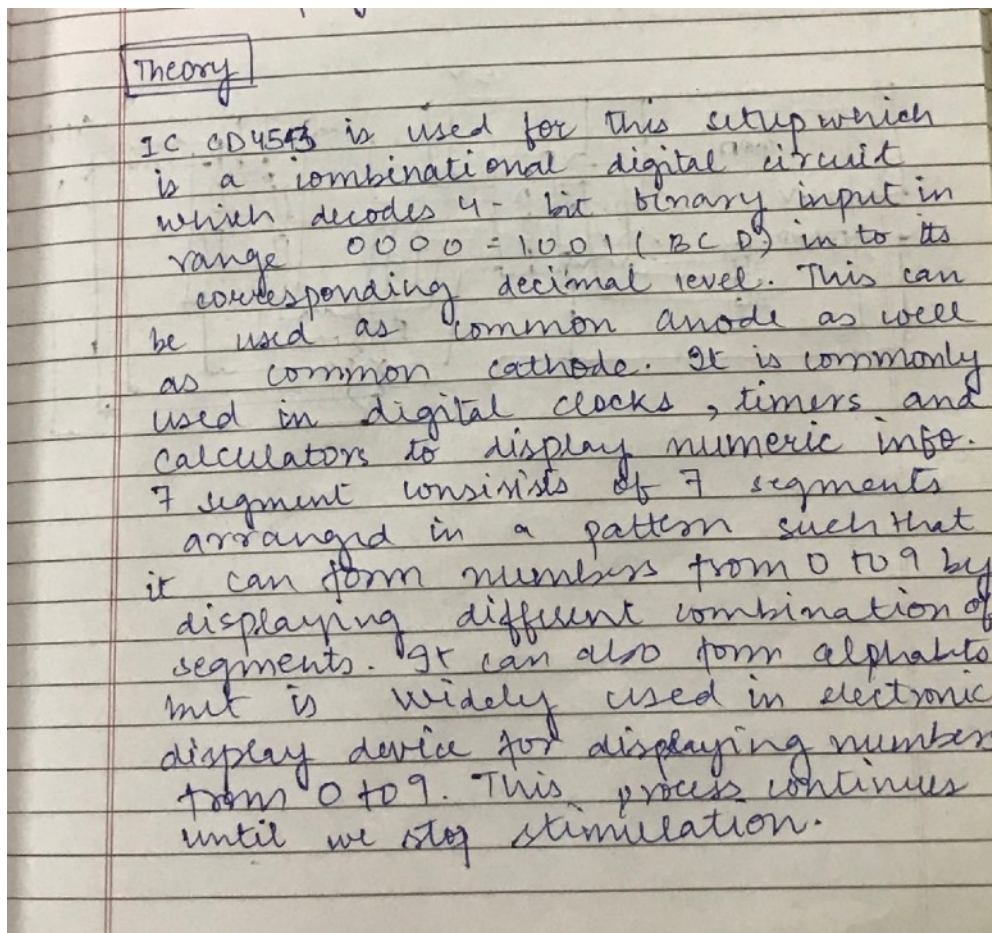 Theory
IC CD4543 is used for this setup which
is a combinational digital circuit
which decodes 4- bit binary input in
range 0000 - 1001 (BCD) in to its
corresponding decimal level. This can
be used as common anode as well
as common cathode. It is commonly
used in digital clocks, timers and
calculators to display numeric info.
7 segment consisists of 7 segments
arranged in a pattern such that
it can form numbers from 0 to 9 by
displaying different combination of
segments. It can also form alphabts
but is widely used in electronic
display device for displaying number
from 0 to 9. This process continues
until we stop stimulation.